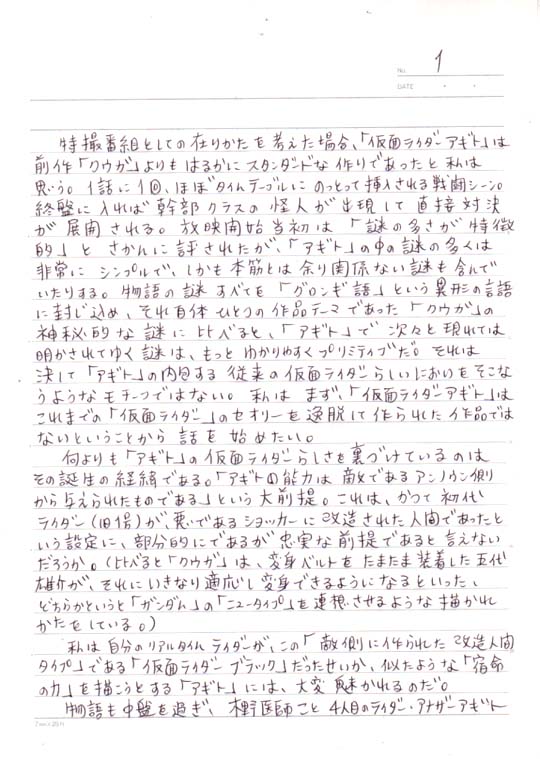 No. 1
DATE
特撮番組としての在りかたを考えた場合、「仮面ライダーアギト」は
前作「クウガ」よりもはるかにスタンダードな作りであったと私は
思う。1話に1回、ほぼタイムテーブルにのっとって挿入される戦闘シーン。
終盤に入れば幹部クラスの怪人が出現して直接対決
が展開される。放映開始当初は「謎の多さが特徴
的」とさかんに評されたが、「アギト」の中の謎の多くは
非常にシンプルで、しかも本筋とは余り関係ない謎も含んで
いたりする。物語の謎すべてを「グロンギ語」という異形の言語
に封じ込め、それ自体ひとつの作品テーマであった「クウガ」の
神秘的な謎に比べると、「アギト」で次々と現れては
明かされてゆく謎は、もっとわかりやすくプリミティブだ。それは
決して「アギト」の内包する従来の仮面ライダーらしいにおいをそこな
うようなモチーフではない。私はまず、「仮面ライダーアギト」は
これまでの「仮面ライダー」のセオリーを逸脱して作られた作品では
ないということから話を始めたい。
何よりも「アギト」の仮面ライダーらしさを裏づけているのは
その誕生の経緯である。「アギトの能力は敵であるアンノウン側
から与えられたものである」という大前提。これは、かつて初代
ライダー(旧1号)が、悪であるショッカーに改造された人間であったと
いう設定に、部分的にであるが忠実な前提であると言えない
だろうか。(比べると「クウガ」は、変身ベルトをたまたま装着した五代
雄介が、それにいきなり適応し変身できるようになるといった、
どちらかというと「ガンダム」の「ニュータイプ」を連想させるような描かれ
かたをしている。)
私は自分のリアルタイムライダーが、この「敵側に作られた改造人間
タイプ」である「仮面ライダーブラック」だったせいか、似たような「宿命
の力」を描こうとする「アギト」には、大変魅かれるのだ。
物語も中盤を過ぎ、木野医師こと4人目のライダー・アナザーアギト
7mm×28行